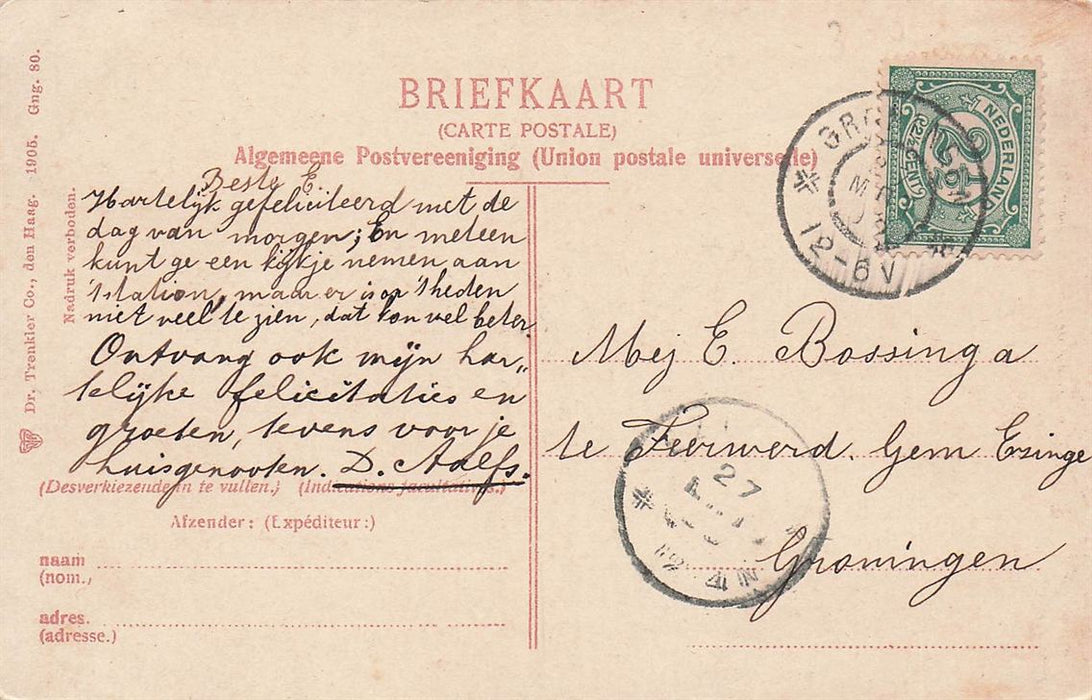 BRIEFKAART
(CARTE POSTALE)
Algemeene Postvereeniging (Union postale universelle)
Dr. Trenkler Co., den Haag. 1905. Gng. 80.
Nadruk verboden.
Beste E.
Hartelijk gefeliciteerd met de
dag van morgen; En meteen
kunt ge een kijkje nemen aan
'tstation, maar er is op 't heden
niet veel te zien, dat kon wel beter.
Ontvang ook mijn har„
telijke felicitaties en
groeten, tevens voor je
huisgenooten. D. Aalfs.
(Desverkiezende in te vullen.) (Indications facultatives.)
Afzender: (Expéditeur:)
naam
(nom.)
adres.
(adresse.)
NEDERLAND
2½
CENT
12-6V
Mej E. Bossinga
te Feerwerd. Gem Ezinge
Groningen
27
12-4N